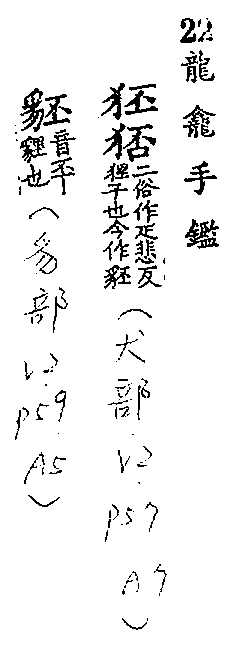 22 龍龕手鑑
狉㹸二俗作疋悲反貍子也今作豾(犬部.V2.p57.A7)
豾音丕豸貍也(豸部V2.p59.A5)